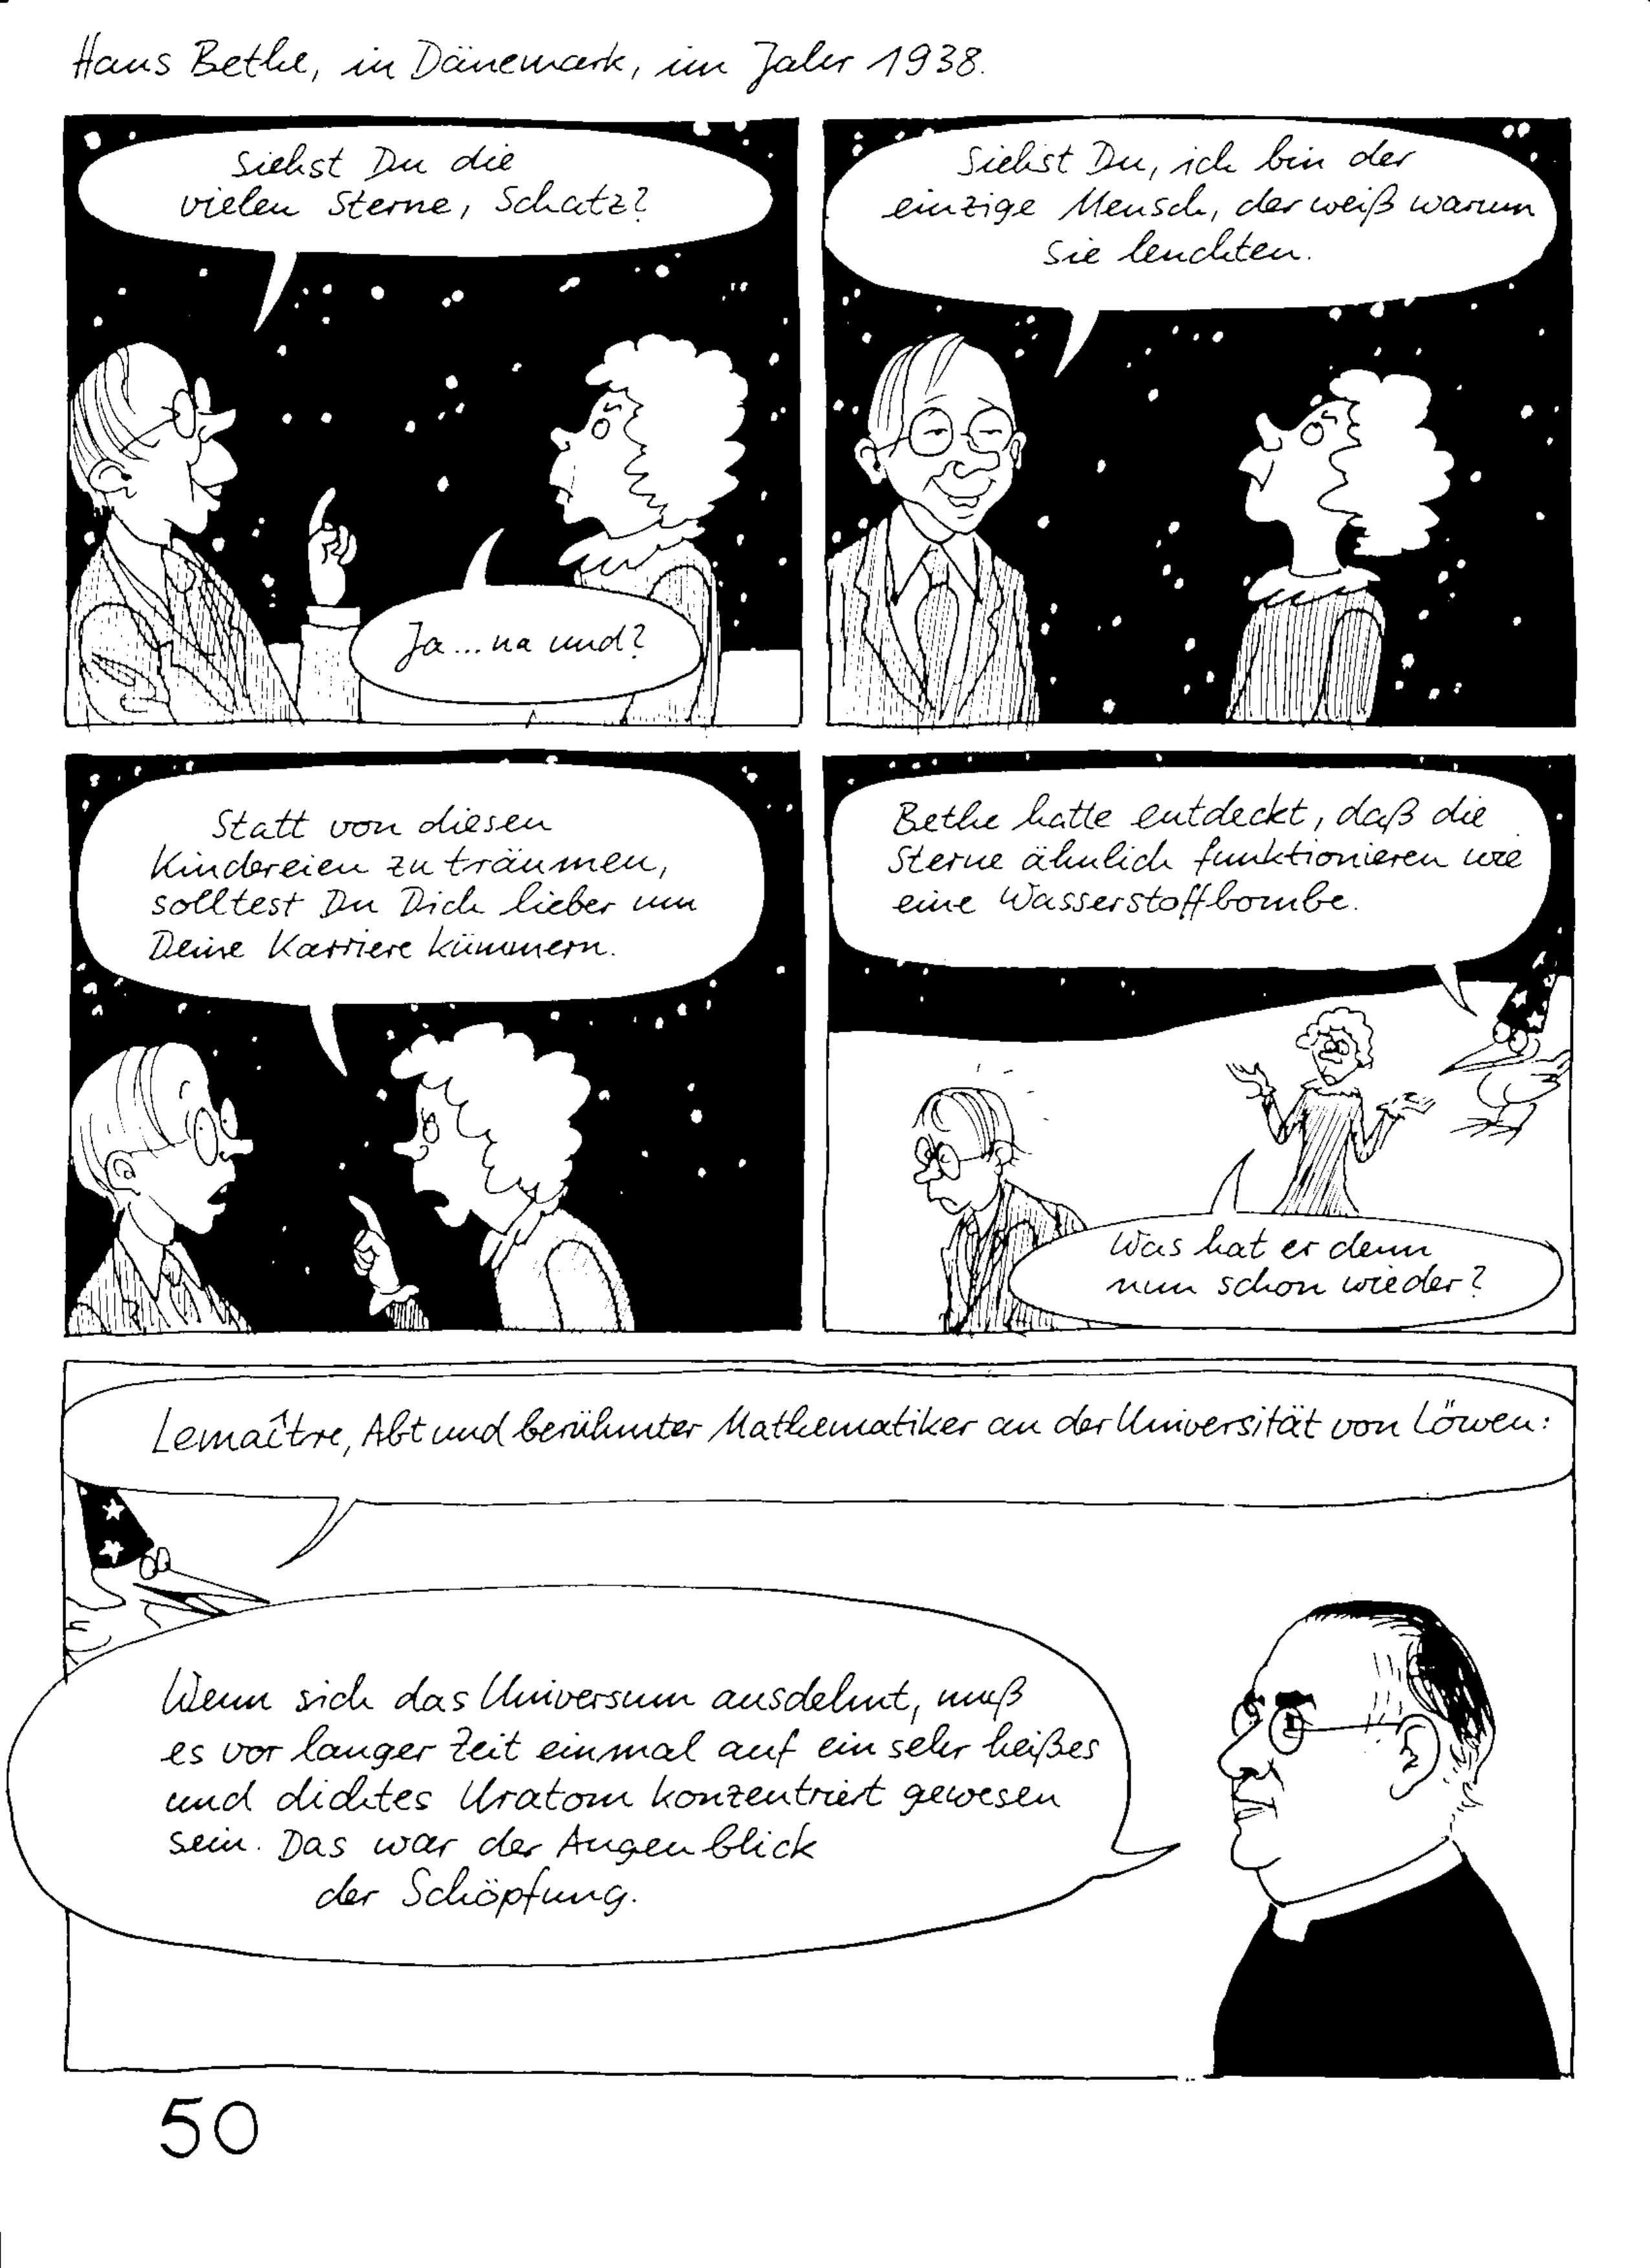 Hans Bethe, in Dänemark, im Jahr 1938.
Siehst Du die
vielen Sterne, Schatz?
Ja... na und?
Siehst Du, ich bin der
einzige Mensch, der weiß warum
sie leuchten.
Statt von diesen
Kindereien zu träumen,
solltest Du Dich lieber um
Deine Karriere kümmern.
Bethe hatte entdeckt, daß die
Sterne ähnlich funktionieren wie
eine Wasserstoffbombe.
Was hat er denn
nun schon wieder?
Lemaître, Abt und berühmter Mathematiker an der Universität von Löwen:
Wenn sich das Universum ausdehnt, muß
es vor langer Zeit einmal auf ein sehr heißes
und dichtes Uratom konzentriert gewesen
sein. Das war der Augenblick
der Schöpfung.
50